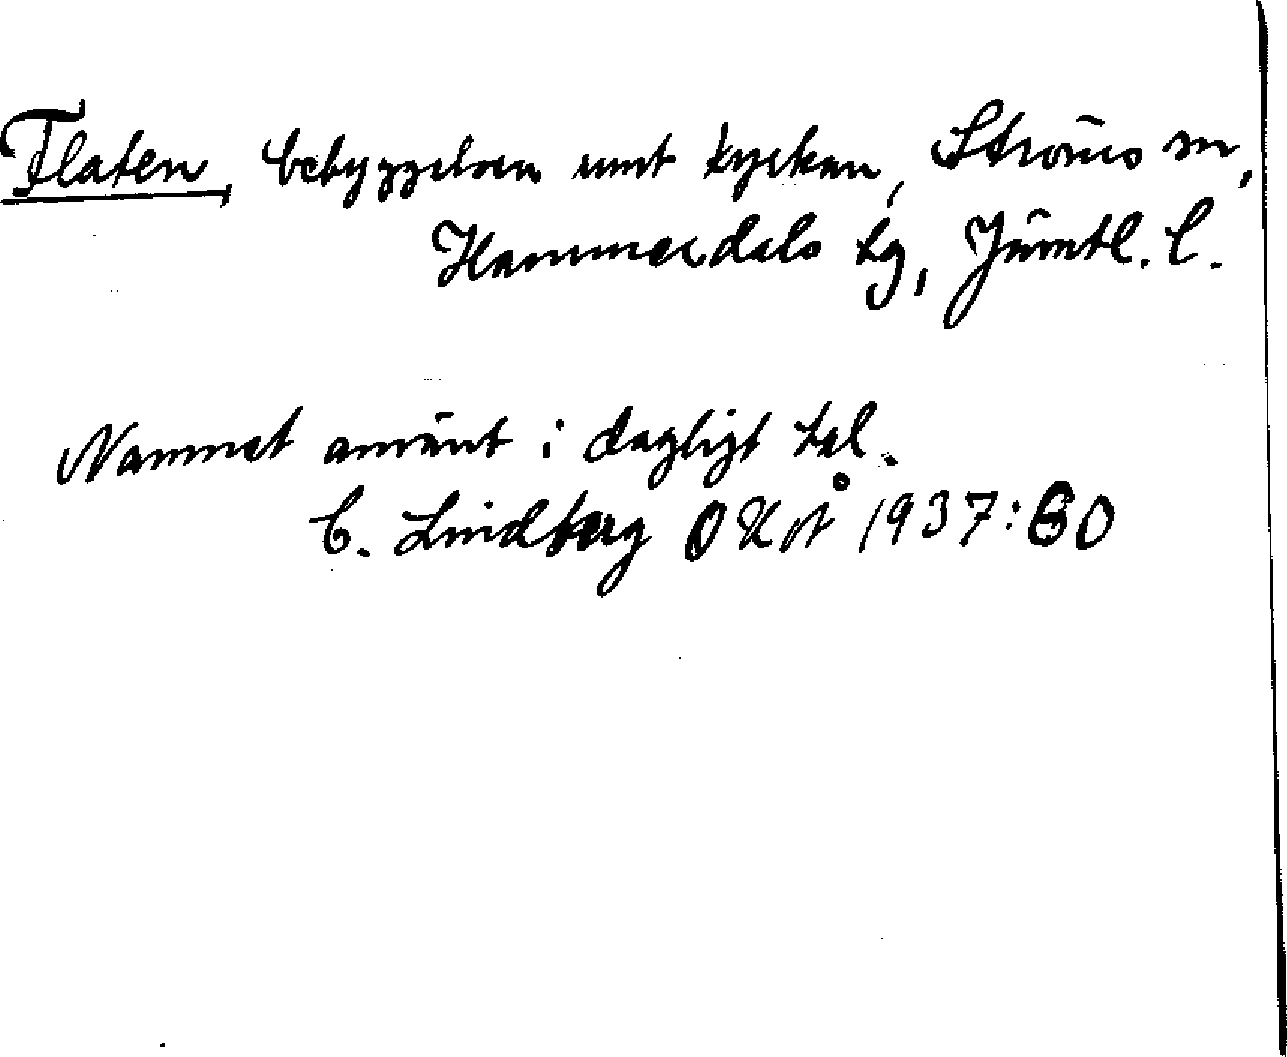 Flaten, bebyggelsen runt kyrkan, Ströms sn,
Hammerdals tg, Jämtl. l.
Namnet använt i dagligt tal.
C. Lindberg OKÅ 1937:60